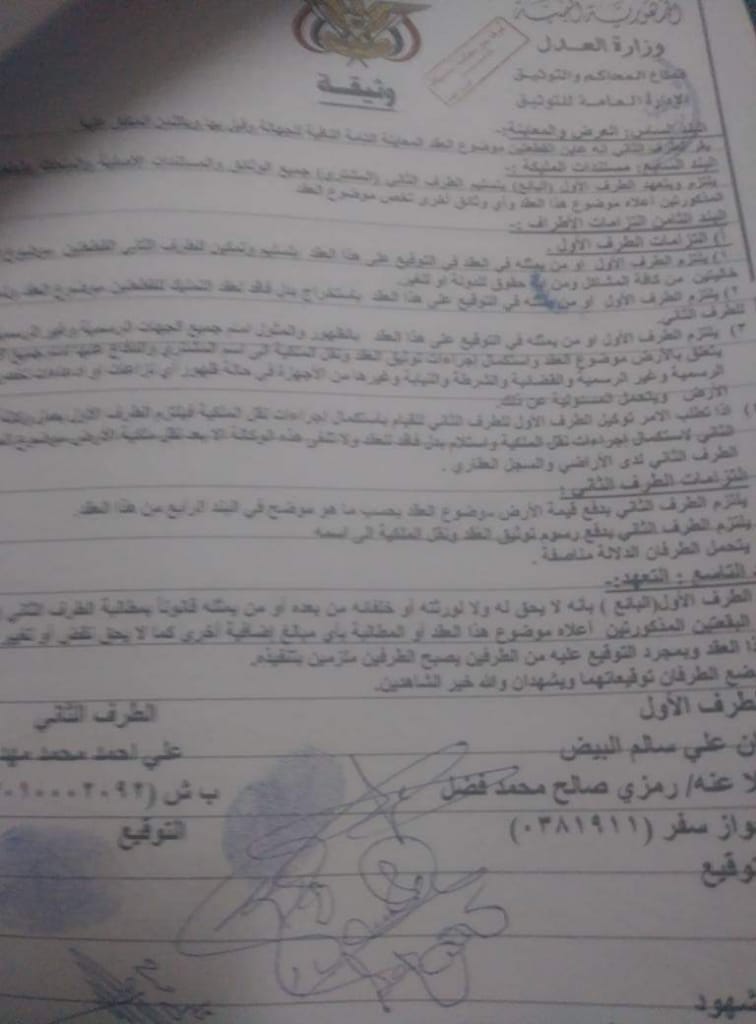 الجمهورية اليمنية
وزارة العدل
قطاع المحاكم والتوثيق
الإدارة العامة للتوثيق
وثيقة
البند السادس: العرض والمعاينة:-
يقر الطرف الثاني أنه عاين القطعتين موضوع العقد المعاينة التامة النافية للجهالة وقبل بها
البند السابع: مستندات الملكية :-
يلتزم ويتعهد الطرف الأول (البائع) بتسليم الطرف الثاني (المشتري) جميع الوثائق والمستندات الأصلية
المذكورتين أعلاه موضوع هذا العقد وأي وثائق أخرى تخص موضوع العقد
البند الثامن التزامات الأطراف :-
أ) التزامات الطرف الأول :
١) يلتزم الطرف الأول أو من يمثله في العقد في التوقيع على هذا العقد بتسليم وتمكين الطرف الثاني القطعتين
خاليتين من كافة المشاكل ومن حقوق للدولة أو للغير.
٢) يلتزم الطرف الأول أو من يمثله في التوقيع على هذا العقد باستخراج بدل فاقد لعقد التمليك للقطعتين موضوع العقد
للطرف الثاني
٣) يلتزم الطرف الأول أو من يمثله في التوقيع على هذا العقد بالظهور والمثول امام جميع الجهات الرسمية وغير
يتعلق بالأرض موضوع العقد واستكمال إجراءات توثيق العقد ونقل الملكية الى اسم المشتري والدفاع عليها امام جميع
الرسمية وغير الرسمية والقضائية والشرطة والنيابة وغيرها من الأجهزة في حالة ظهور أي نزاعات او ادعاءات
الأرض ويتحمل المسئولية عن ذلك.
اذا تطلب الامر توكيل الطرف الأول للطرف الثاني للقيام باستكمال إجراءات نقل الملكية فيلتزم الطرف الأول بعمل
الثاني لاستكمال إجراءات نقل الملكية واستلام بدل فاقد للعقد ولا تنتهي هذه الوكالة الا بعد نقل ملكية الأرض موضوع
الطرف الثاني لدى الأراضي والسجل العقاري .
التزامات الطرف الثاني :
يلتزم الطرف الثاني بدفع قيمة الأرض موضوع العقد بحسب ما هو موضح في البند الرابع من هذا العقد.
يلتزم الطرف الثاني بدفع رسوم توثيق العقد ونقل الملكية الى اسمه
يتحمل الطرفان الدلالة مناصفة .
التاسع : التعهد:-
الطرف الأول(البائع ) بأنه لا يحق له ولا لورثته أو خلفائه من بعده أو من يمثله قانوناً بمطالبة الطرف الثاني
البقعتين المذكورتين أعلاه موضوع هذا العقد أو المطالبة بأي مبالغ إضافية أخرى كما لا يحق نقض أو تغيير
العقد وبمجرد التوقيع عليه من الطرفين يصبح الطرفين ملزمين بتنفيذه.
الطرفان توقيعاتهما ويشهدان والله خير الشاهدين.
الطرف الأول
الطرف الثاني
علي سالم البيض
علي احمد محمد
عنه/ رمزي صالح محمد فضل
ب ش
سفر (٠٣٨١٩١١)
التوقيع